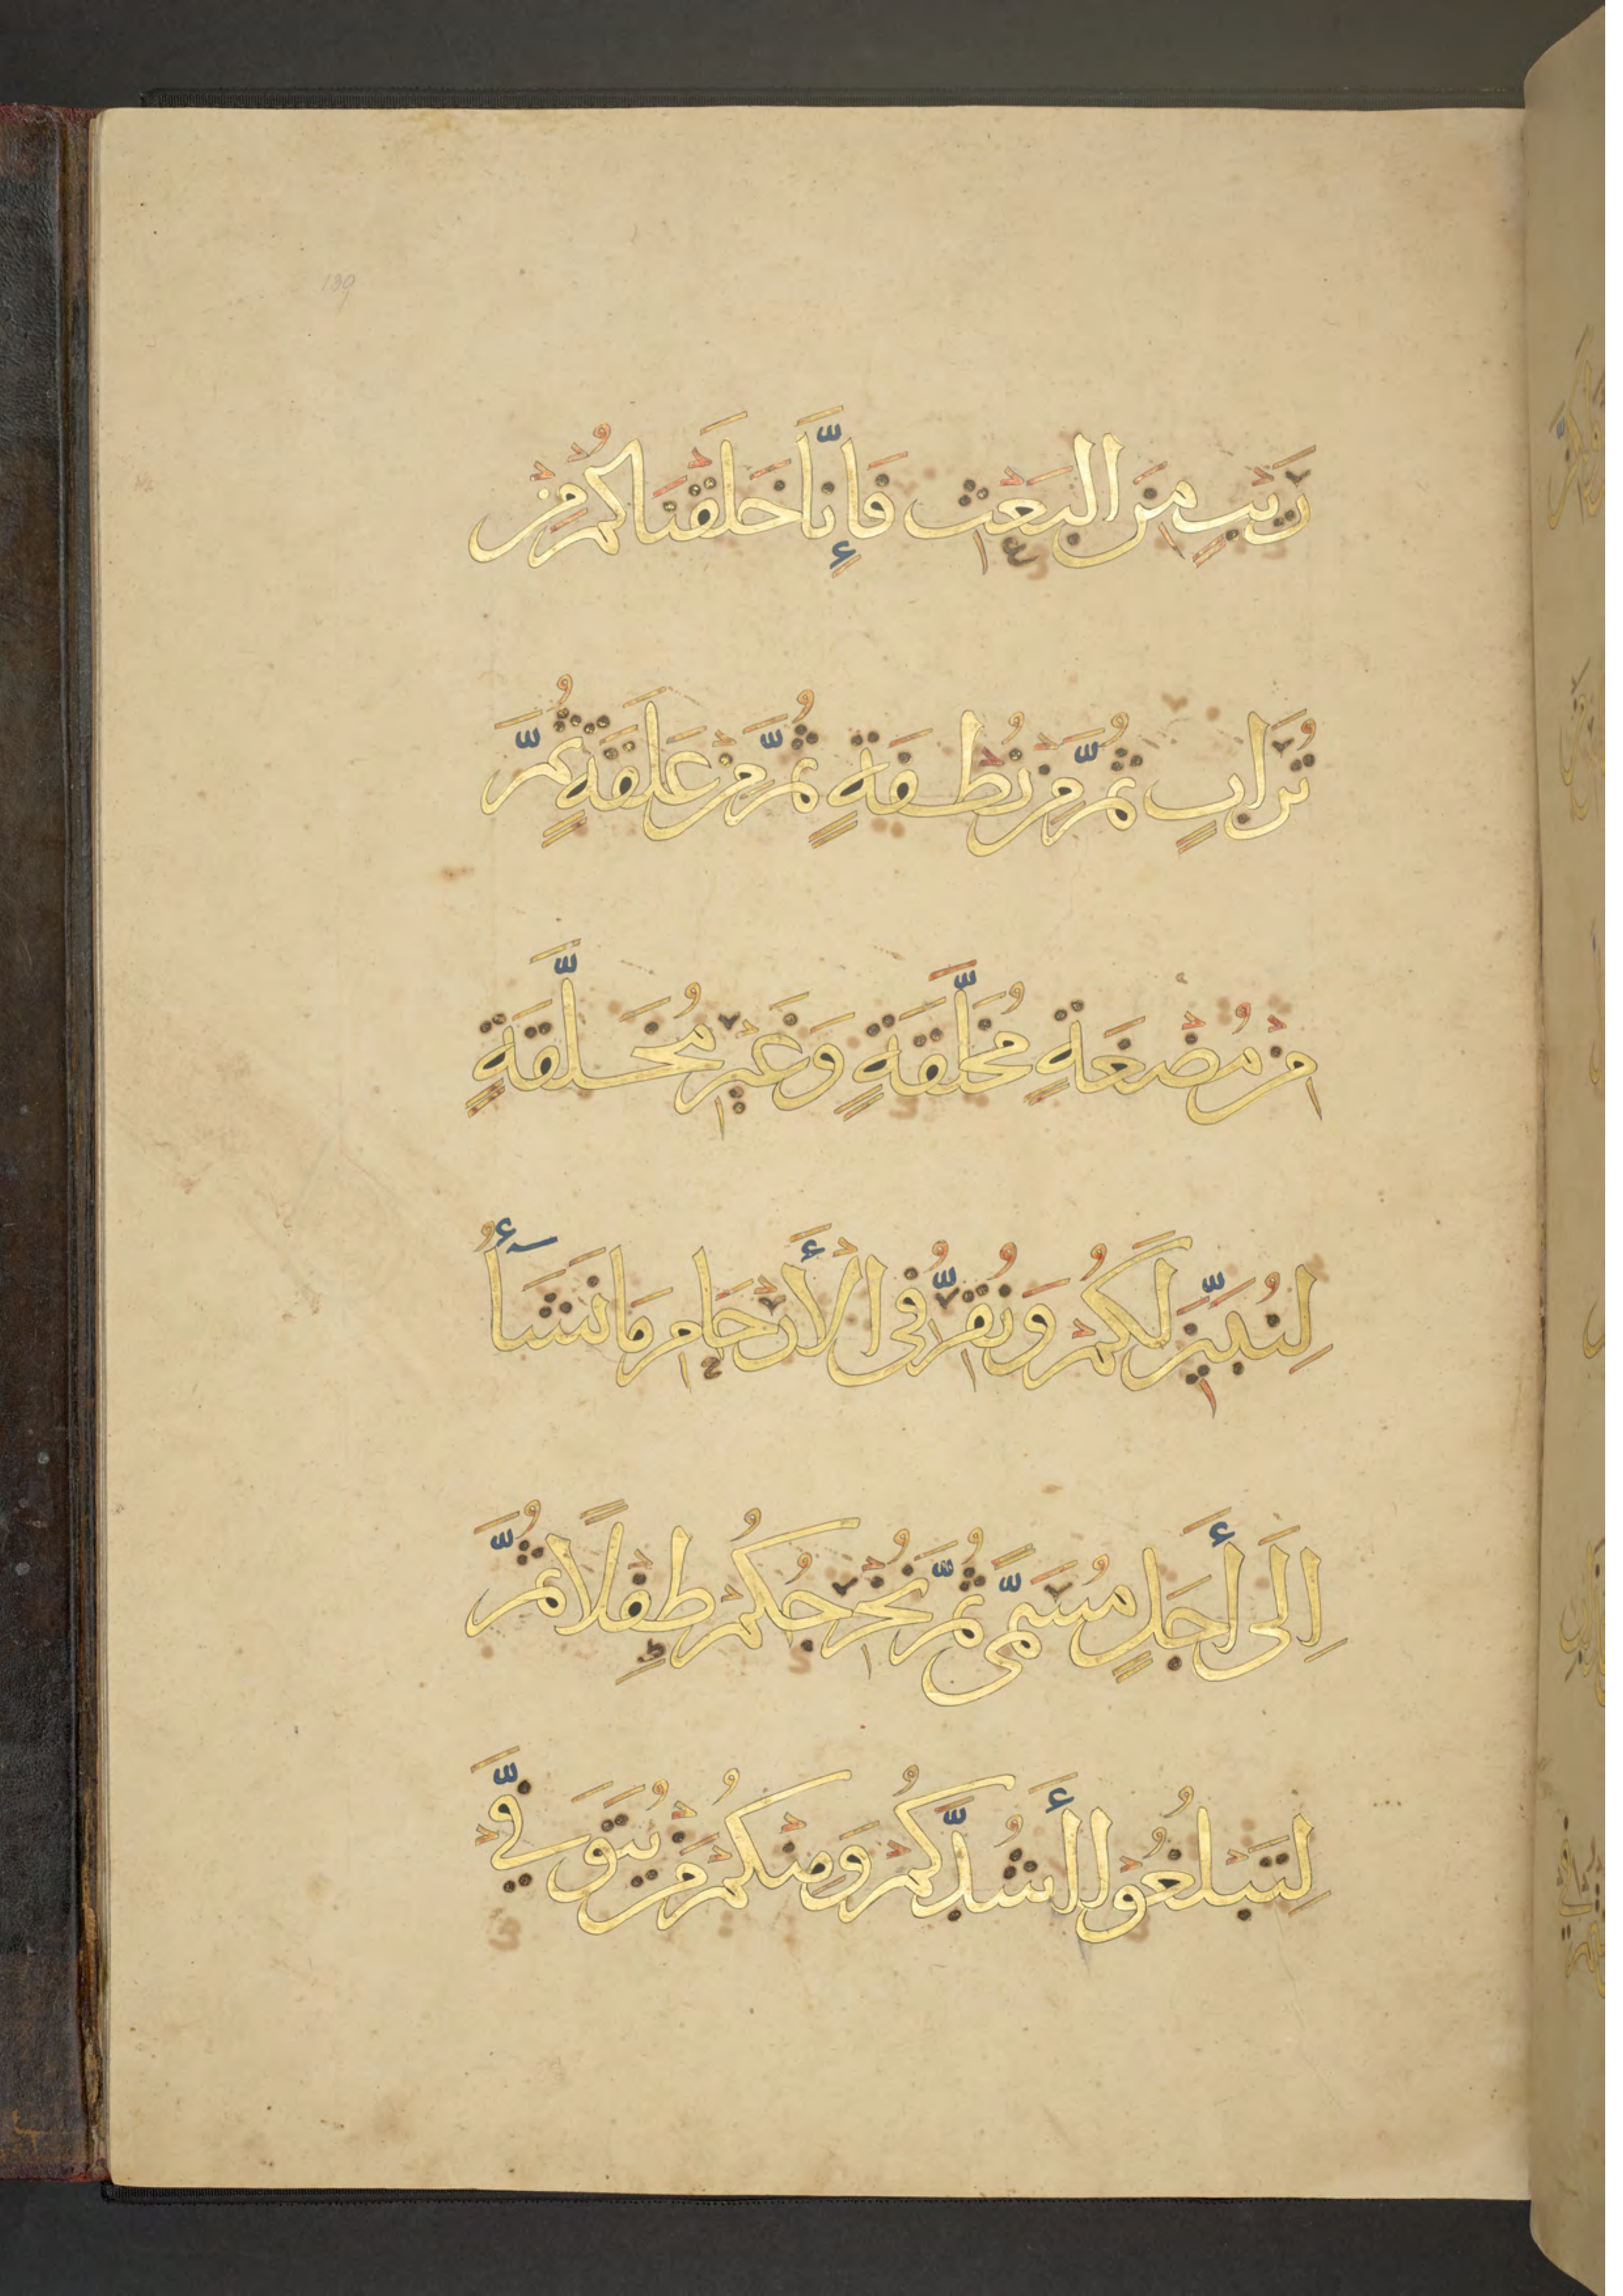 130
رَيْبٍ مِنَ الْبَعْثِ فَإِنَّا خَلَقْنَاكُمْ مِنْ
تُرَابٍ ثُمَّ مِنْ نُطْفَةٍ ثُمَّ مِنْ عَلَقَةٍ ثُمَّ
مِنْ مُضْغَةٍ مُخَلَّقَةٍ وَغَيْرِ مُخَلَّقَةٍ
لِنُبَيِّنَ لَكُمْ وَنُقِرُّ فِى الْأَرْحَامِ مَا نَشَأُ
إِلَى أَجَلٍ مُسَمًّى ثُمَّ نُخْرِجُكُمْ طِفْلًا ثُمَّ
لِتَبْلُغُوا أَشُدَّكُمْ وَمِنْكُمْ مَنْ يُتَوَفَّى